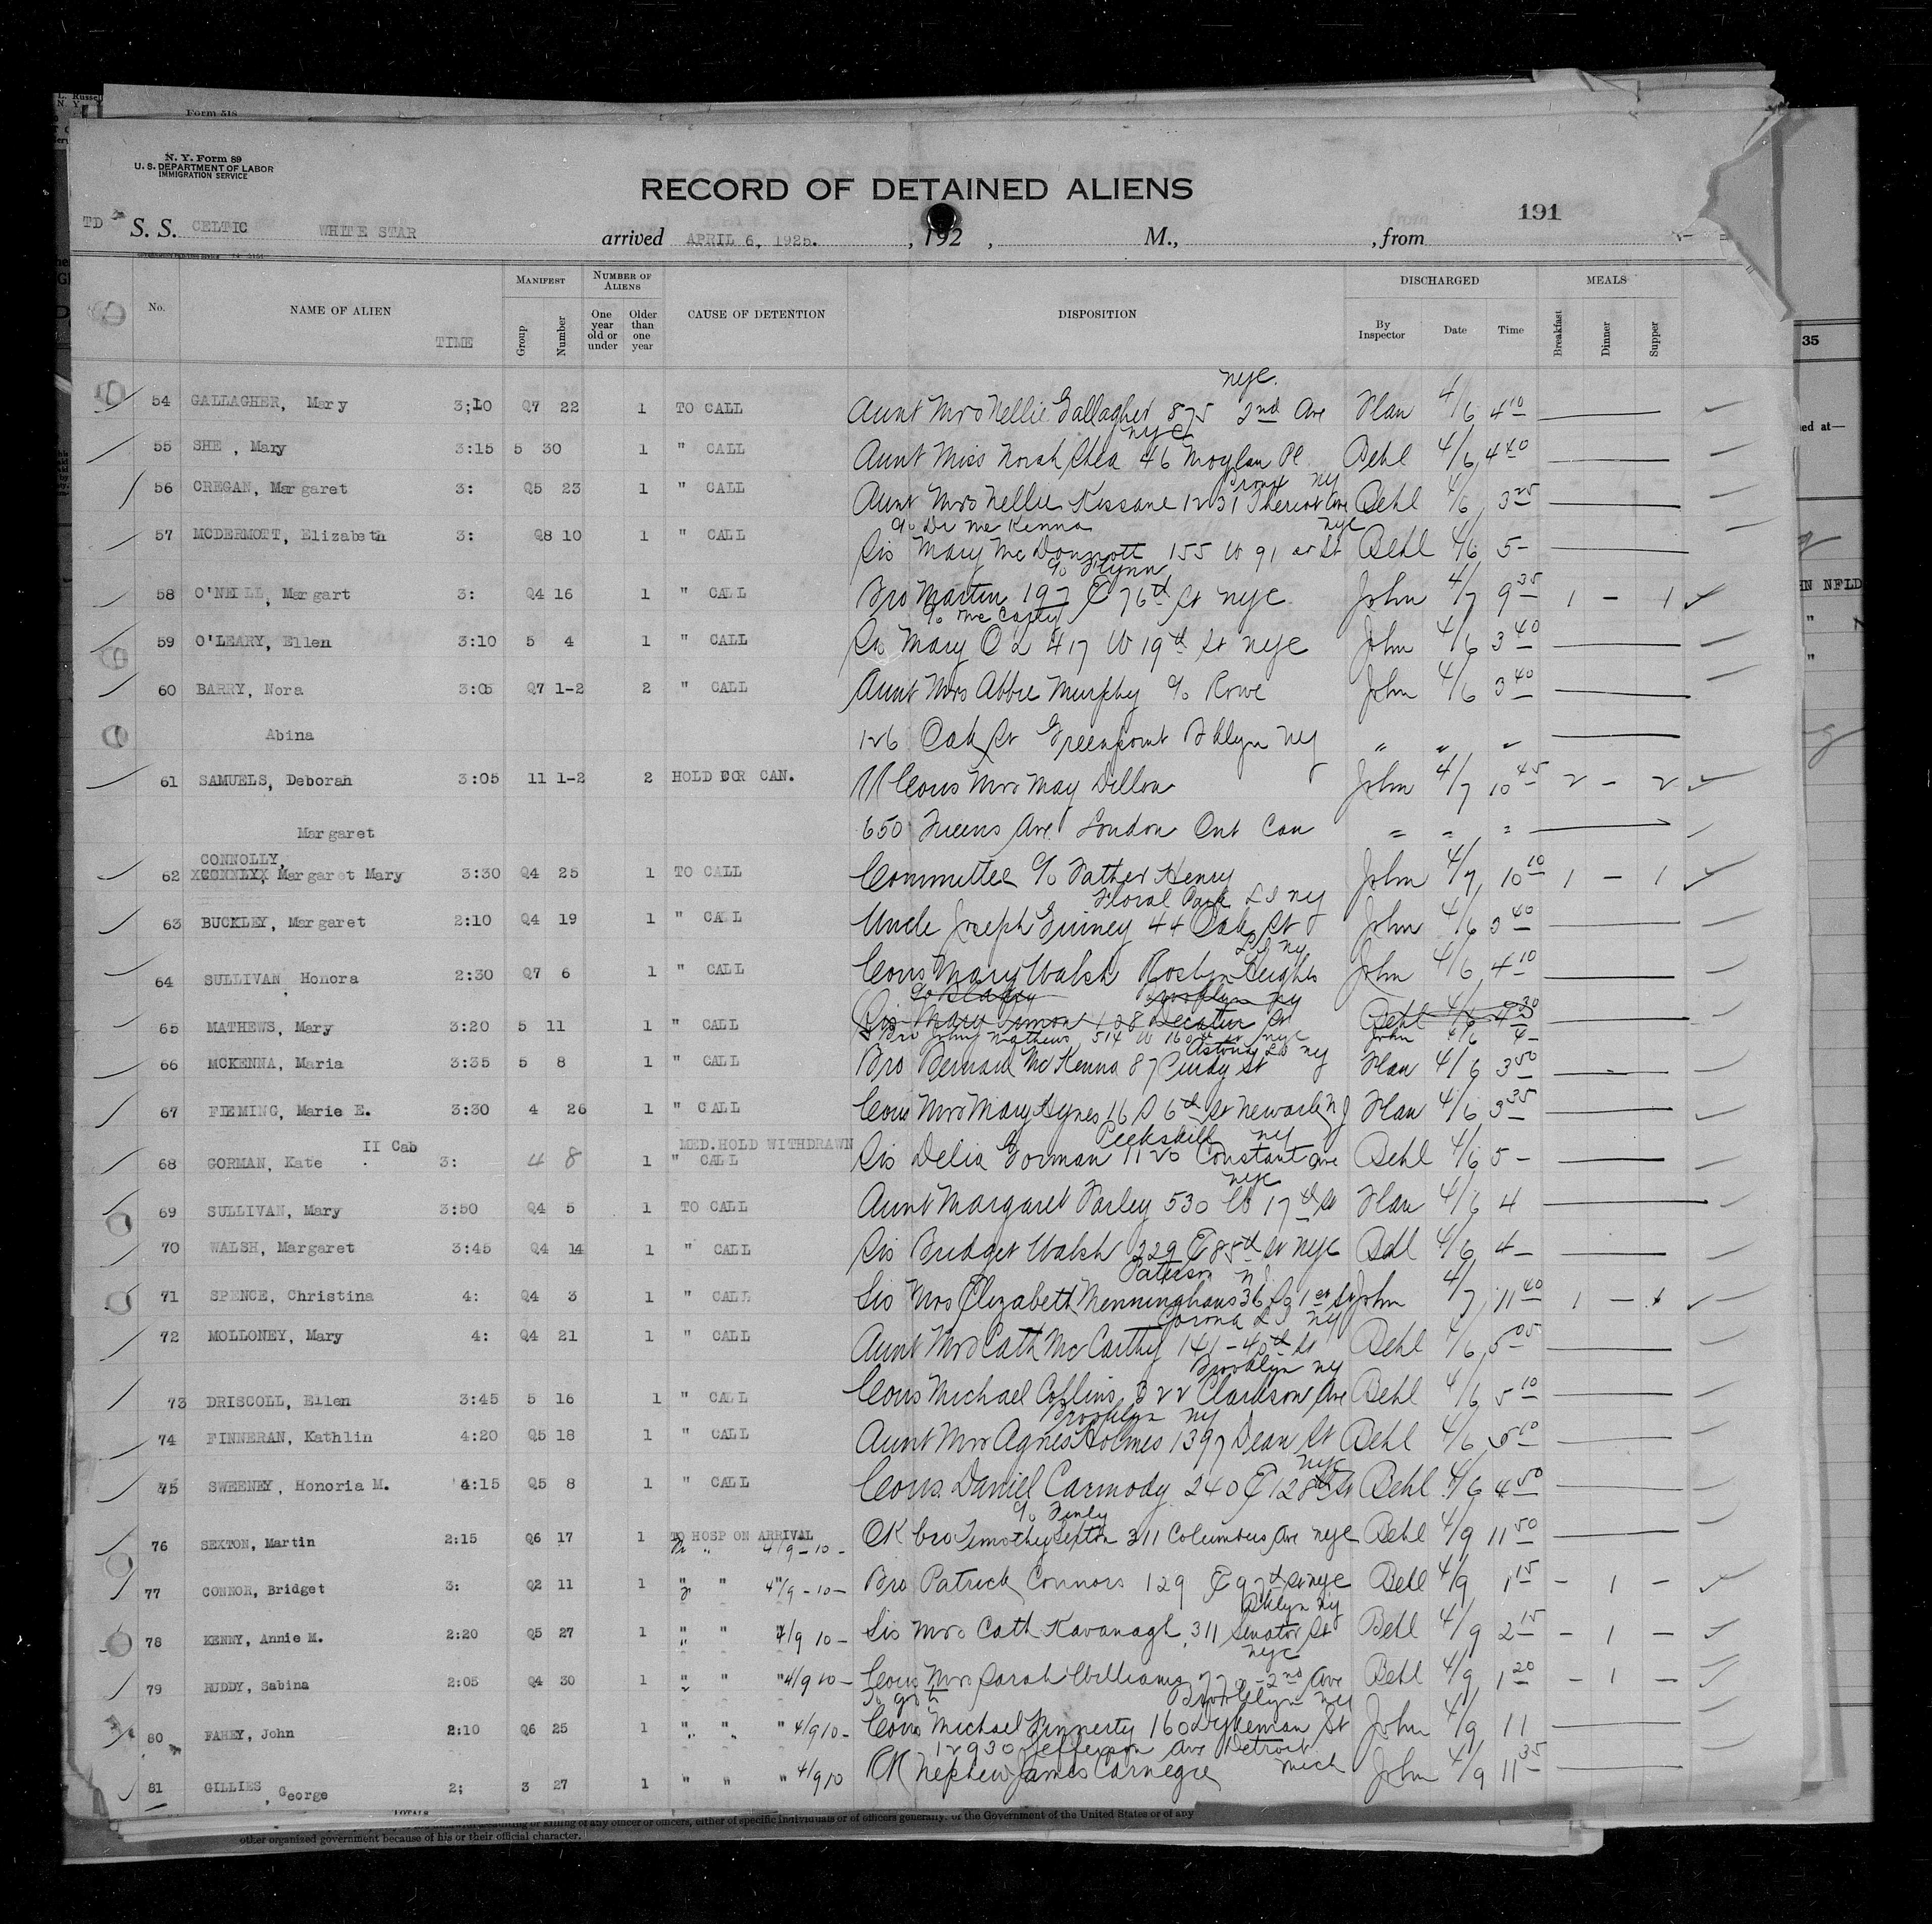 L. Russe
N. Y.
Form 518
N. Y. Form 89
U. S. DEPARTMENT OF LABOR
IMMIGRATION SERVICE
RECORD OF DETAINED ALIENS
191
TD S. S. CELTIC WHITE STAR arrived APRIL 6, 1925. , 192 , M., , from
No. NAME OF ALIEN TIME MANIFEST Group Number NUMBER OF ALIENS One year old or under Older than one year CAUSE OF DETENTION DISPOSITION DISCHARGED By Inspector Date Time MEALS Breakfast Dinner Supper
35
nyc.
54 GALLAGHER, Mary 3:10 Q7 22 1 TO CALL Aunt Mrs Nellie Gallagher 875 2nd Ave Han 4/6 4 10
nyc
55 SHE , Mary 3:15 5 30 1 " CALL Aunt Miss Norah Shea 46 Moylan Pl Behl 4/6 4 40
Bronx ny
56 CREGAN, Margaret 3: Q5 23 1 " CALL Aunt Mrs Nellie Kissane 1231 Theriot Ave Behl 4/6 3 25
c/o Dr McKenna nyc
57 MCDERMOTT, Elizabeth 3: Q8 10 1 " CALL Sis Mary McDermott 155 W 91 st St Behl 4/6 5 -
c/o Flynn
58 O'NEILL, Margart 3: Q4 16 1 " CALL Bro Martin 197 E 76th St nyc John 4/7 9 35 1 - 1
59 O'LEARY, Ellen 3:10 5 4 1 " CALL Sis Mary O'L 417 W 19th St nyc John 4/6 3 40
60 BARRY, Nora 3:05 Q7 1-2 2 " CALL Aunt Mrs Abbie Murphy c/o Rowe John 4/6 3 40
Abina 126 Oak St Greenpoint Bklyn ny " " "
61 SAMUELS, Deborah 3:05 11 1-2 2 HOLD FOR CAN. Cous Mrs May Dillon John 4/7 10 45 2 - 2
Margaret 650 Queens Ave London Ont Can " " "
CONNOLLY,
62 XCONNLYX Margaret Mary 3:30 Q4 25 1 TO CALL Committee c/o Father Henry John 4/7 10 10 1 - 1
Floral Park L I ny
63 BUCKLEY, Margaret 2:10 Q4 19 1 " CALL Uncle Joseph Guiney 44 Oak St John 4/6 3 40
L I ny
64 SULLIVAN Honora 2:30 Q7 6 1 " CALL Cous Mary Walsh Roslyn Heights John 4/6 4 10
Brooklyn ny
65 MATHEWS, Mary 3:20 5 11 1 " CALL Sis Mary Simon 108 Decatur St Behl 4/6 4 30
Bro John Mathews 514 W 160 St nyc John 4/6 4 -
Astoria L I ny
66 MCKENNA, Maria 3:35 5 8 1 " CALL Bro Bernard McKenna 87 Purdy St Han 4/6 3 50
67 FLEMING, Marie E. 3:30 4 26 1 " CALL Cous Mrs Mary Hynes 16 S 6th St Newark N J Han 4/6 3 35
II Cab MED. HOLD WITHDRAWN Peekskill ny
68 GORMAN, Kate 3: 4 8 1 " CALL Sis Delia Gorman 1120 Constant Ave Behl 4/6 5 -
nyc
69 SULLIVAN, Mary 3:50 Q4 5 1 TO CALL Aunt Margaret Farley 530 W 17th St Han 4/6 4
70 WALSH, Margaret 3:45 Q4 14 1 " CALL Sis Bridget Walsh 229 E 85th St nyc Behl 4/6 4 -
Paterson n J
71 SPENCE, Christina 4: Q4 3 1 " CALL Sis Mrs Elizabeth Menninghaus 36 So 1st St John 4/7 11 40 1 - 1
Corona L I ny
72 MOLLONEY, Mary 4: Q4 21 1 " CALL Aunt Mrs Cath McCarthy 141 - 40th St Behl 4/6 5 05
Brooklyn ny
73 DRISCOLL, Ellen 3:45 5 16 1 " CALL Cous Michael Collins 322 Clarkson Ave Behl 4/6 5 10
Brooklyn ny
74 FINNERAN, Kathlin 4:20 Q5 18 1 " CALL Aunt Mrs Agnes Holmes 1397 Dean St Behl 4/6 5 10
nyc
75 SWEENEY, Honoria M. 4:15 Q5 8 1 " CALL Cous. Daniel Carmody 240 E 128th St Behl 4/6 4 50
c/o Finly
76 SEXTON, Martin 2:15 Q6 17 1 TO HOSP ON ARRIVAL 4/9 - 10 - OK bro Timothy Sexton 311 Columbus Ave nyc Behl 4/9 11 50
77 CONNOR, Bridget 3: Q2 11 1 " " " 4/9 - 10 - Bro Patrick Connors 129 E 97th St nyc Behl 4/9 1 15 - 1 -
Bklyn ny
78 KENNY, Annie M. 2:20 Q5 27 1 " " " 4/9 10 - Sis Mrs Cath Kavanagh 311 Senator St Behl 4/9 2 15 - 1 -
nyc
79 RUDDY, Sabina 2:05 Q4 30 1 " " " 4/9 10 - Cous Mrs Sarah Williams 779 - 2nd Ave Behl 4/9 1 20 - 1 -
Brooklyn ny
80 FAHEY, John 2:10 Q6 25 1 " " " 4/9 10 - Cous Michael Finnerty 160 Dykeman St John 4/9 11
12930 Jefferson Ave Detroit
81 GILLIES, George 2; 3 27 1 " " " 4/9 10 OK Nephew James Carnegie Mich John 4/9 11 35
TOTALS
other organized government because of his or their official character.